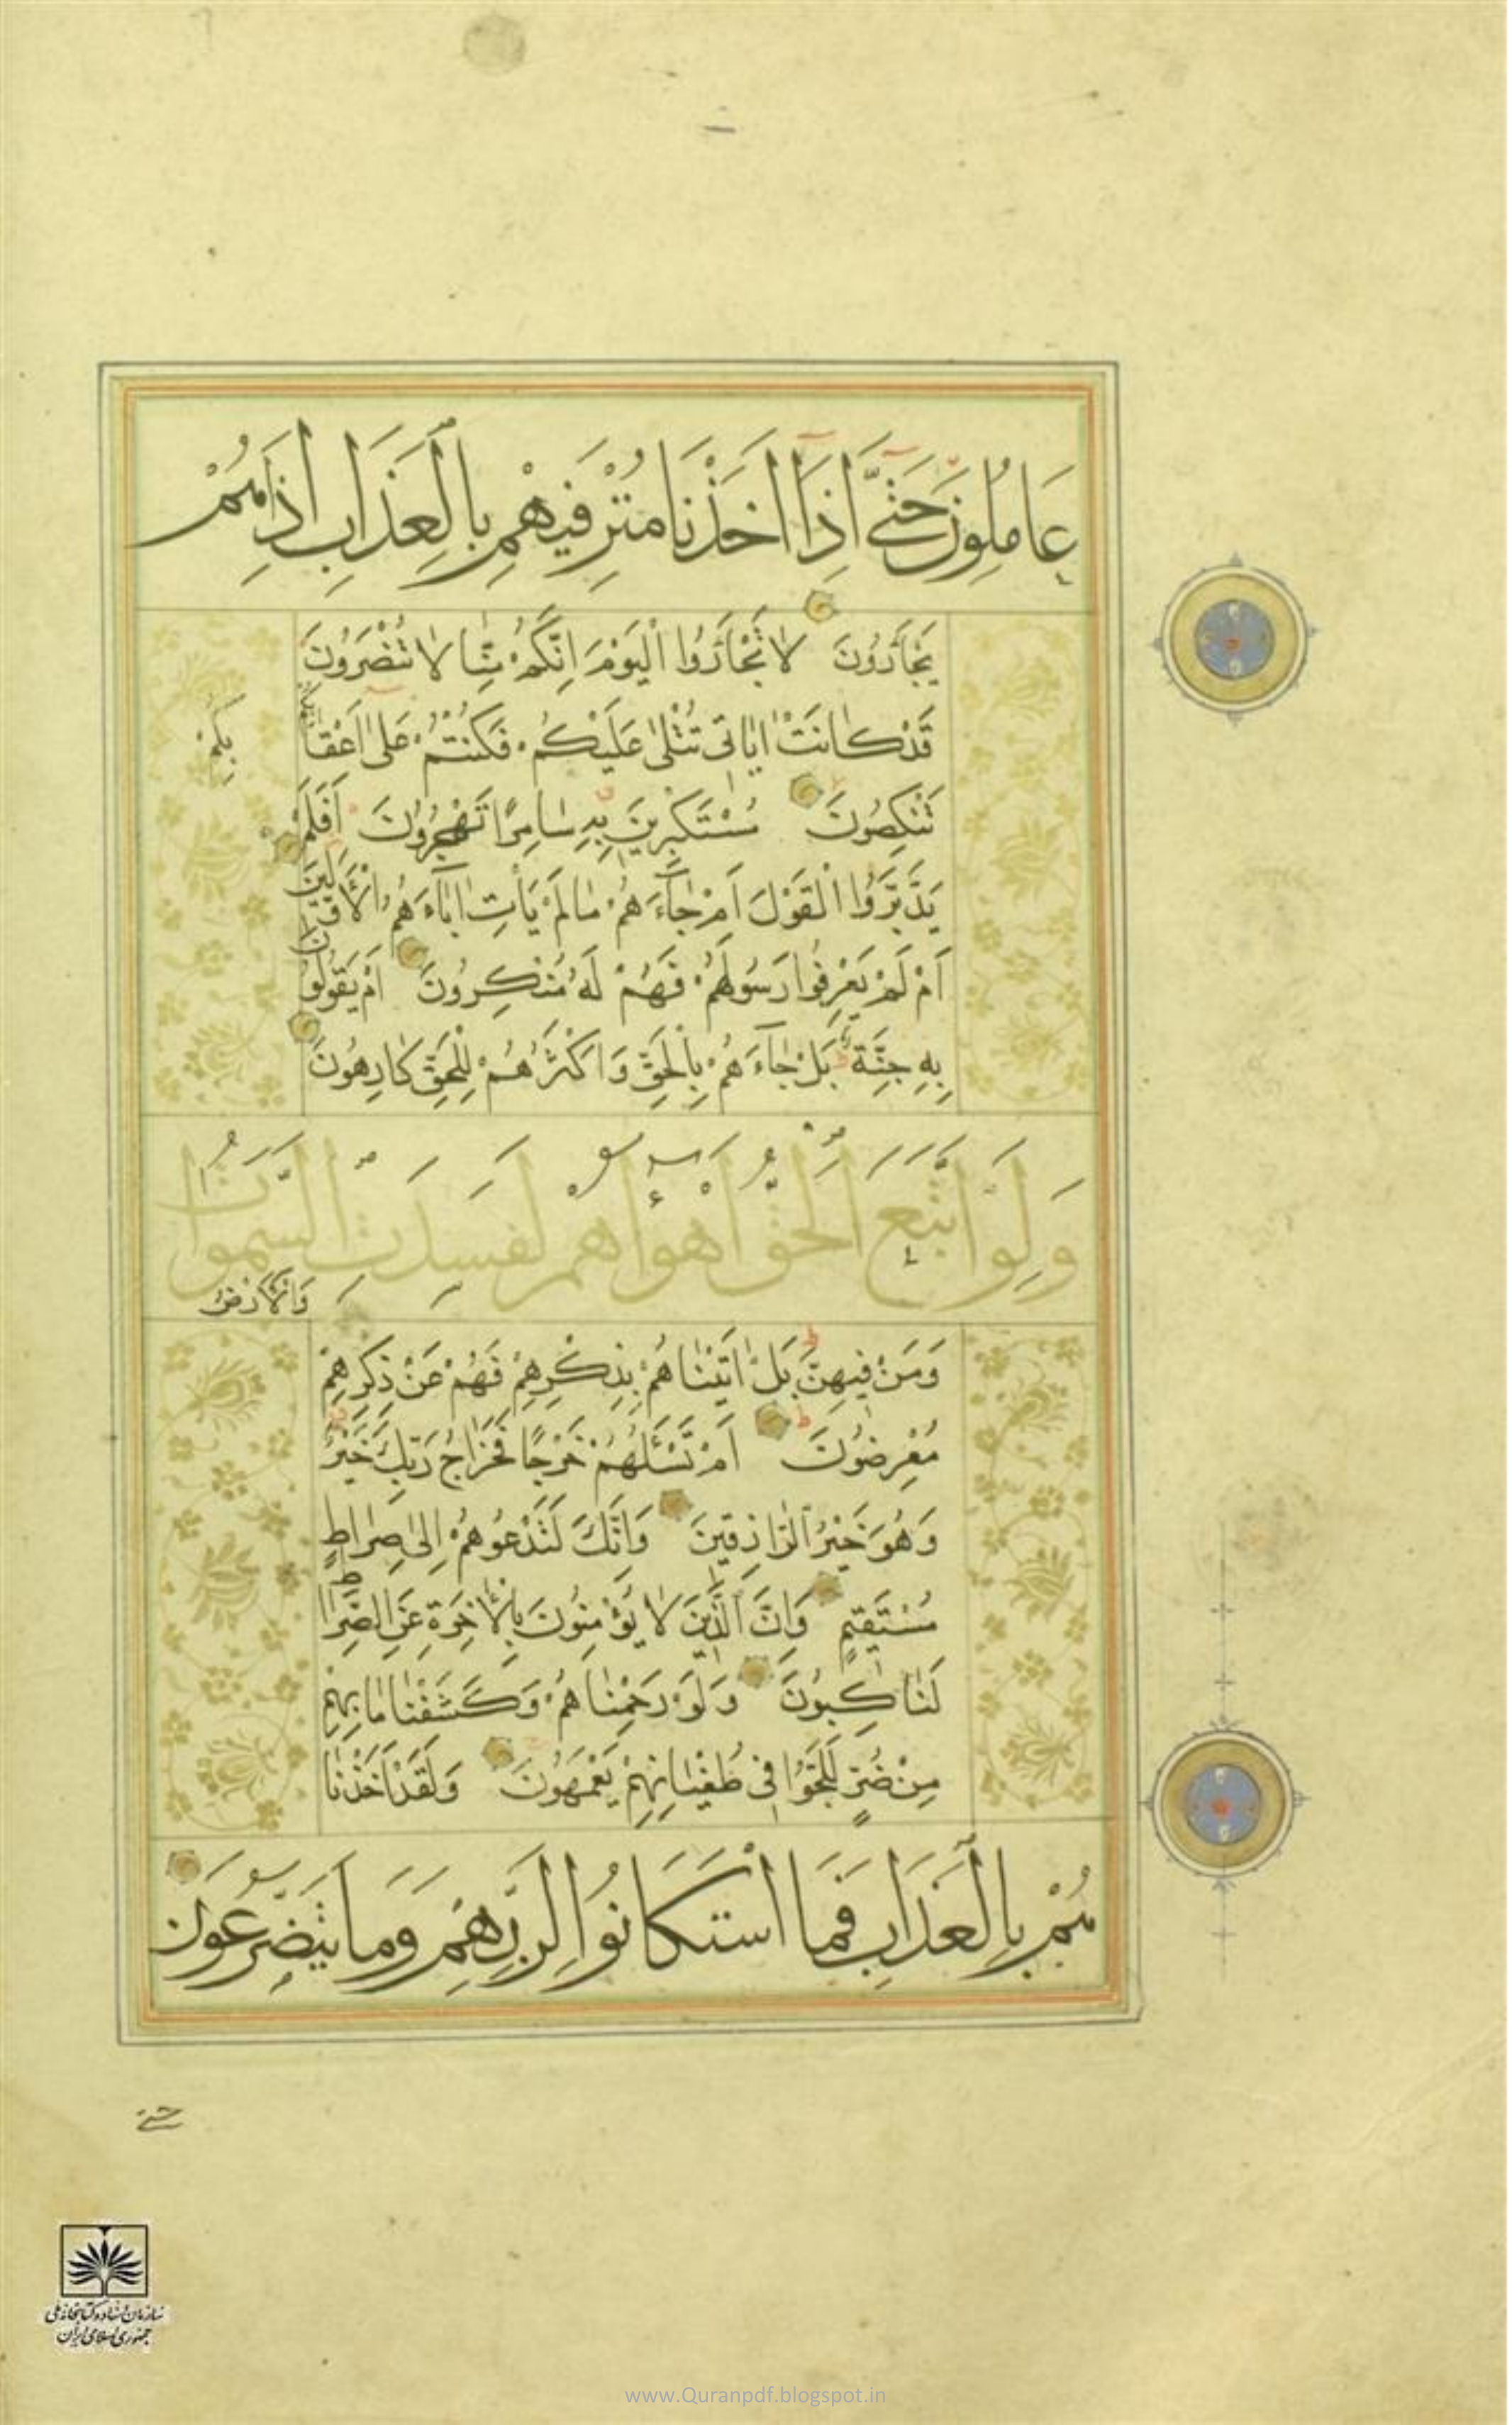 عَامِلُونَ حَتّىَٰٓ اِذَٓا اَخَذْنَا مُتْرَفيهِمْ بِالْعَذَابِ اِذَا هُمْ
يَجْاَرُونَ لَا تَجْاَرُوا الْيَوْمَ اِنَّكُمْ مِنَّا لَا تُنْصَرُونَ
قَدْ كَانَتْ اٰيَاتى تُتْلٰى عَلَيْكُمْ فَكُنْتُمْ عَلٰٓى اَعْقَابِكُمْ
بِكُمْ
تَنْكِصُونَ مُسْتَكْبِرِينَ بِهِ سَامِرًا تَهْجُرُونَ اَفَلَمْ
يَدَّبَّرُوا الْقَوْلَ اَمْ جَآءَهُمْ مَا لَمْ يَأْتِ اٰبَآءَهُمُ الْاَوَّلِينَ
اَمْ لَمْ يَعْرِفُوا رَسُولَهُمْ فَهُمْ لَهُ مُنْكِرُونَ اَمْ يَقُولُونَ
بِهِ جِنَّةٌ بَلْ جَآءَهُمْ بِالْحَقِّ وَاَكْثَرُهُمْ لِلْحَقِّ كَارِهُونَ
وَلَوِ اتَّبَعَ الْحَقُّ اَهْوَآءَهُمْ لَفَسَدَتِ السَّمٰوَاتُ
وَالْاَرْضُ
وَمَنْ فِيهِنَّ بَلْ اَتَيْنَاهُمْ بِذِكْرِهِمْ فَهُمْ عَنْ ذِكْرِهِمْ
مُعْرِضُونَ اَمْ تَسْئَلُهُمْ خَرْجًا فَخَرَاجُ رَبِّكَ خَيْرٌ
وَهُوَ خَيْرُ الرَّازِقِينَ وَاِنَّكَ لَتَدْعُوهُمْ اِلٰى صِرَاطٍ
مُسْتَقِيمٍ وَاِنَّ الَّذِينَ لَا يُؤْمِنُونَ بِالْاٰخِرَةِ عَنِ الصِّرَاطِ
لَنَاكِبُونَ وَلَوْ رَحِمْنَاهُمْ وَكَشَفْنَا مَا بِهِمْ
مِنْ ضُرٍّ لَلَجُّوا فى طُغْيَانِهِمْ يَعْمَهُونَ وَلَقَدْ اَخَذْنَا
هُمْ بِالْعَذَابِ فَمَا اسْتَكَانُوا لِرَبِّهِمْ وَمَا يَتَضَرَّعُونَ
حتى
سازمان اسناد و کتابخانه ملی
جمهوری اسلامی ایران
www.Quranpdf.blogspot.in